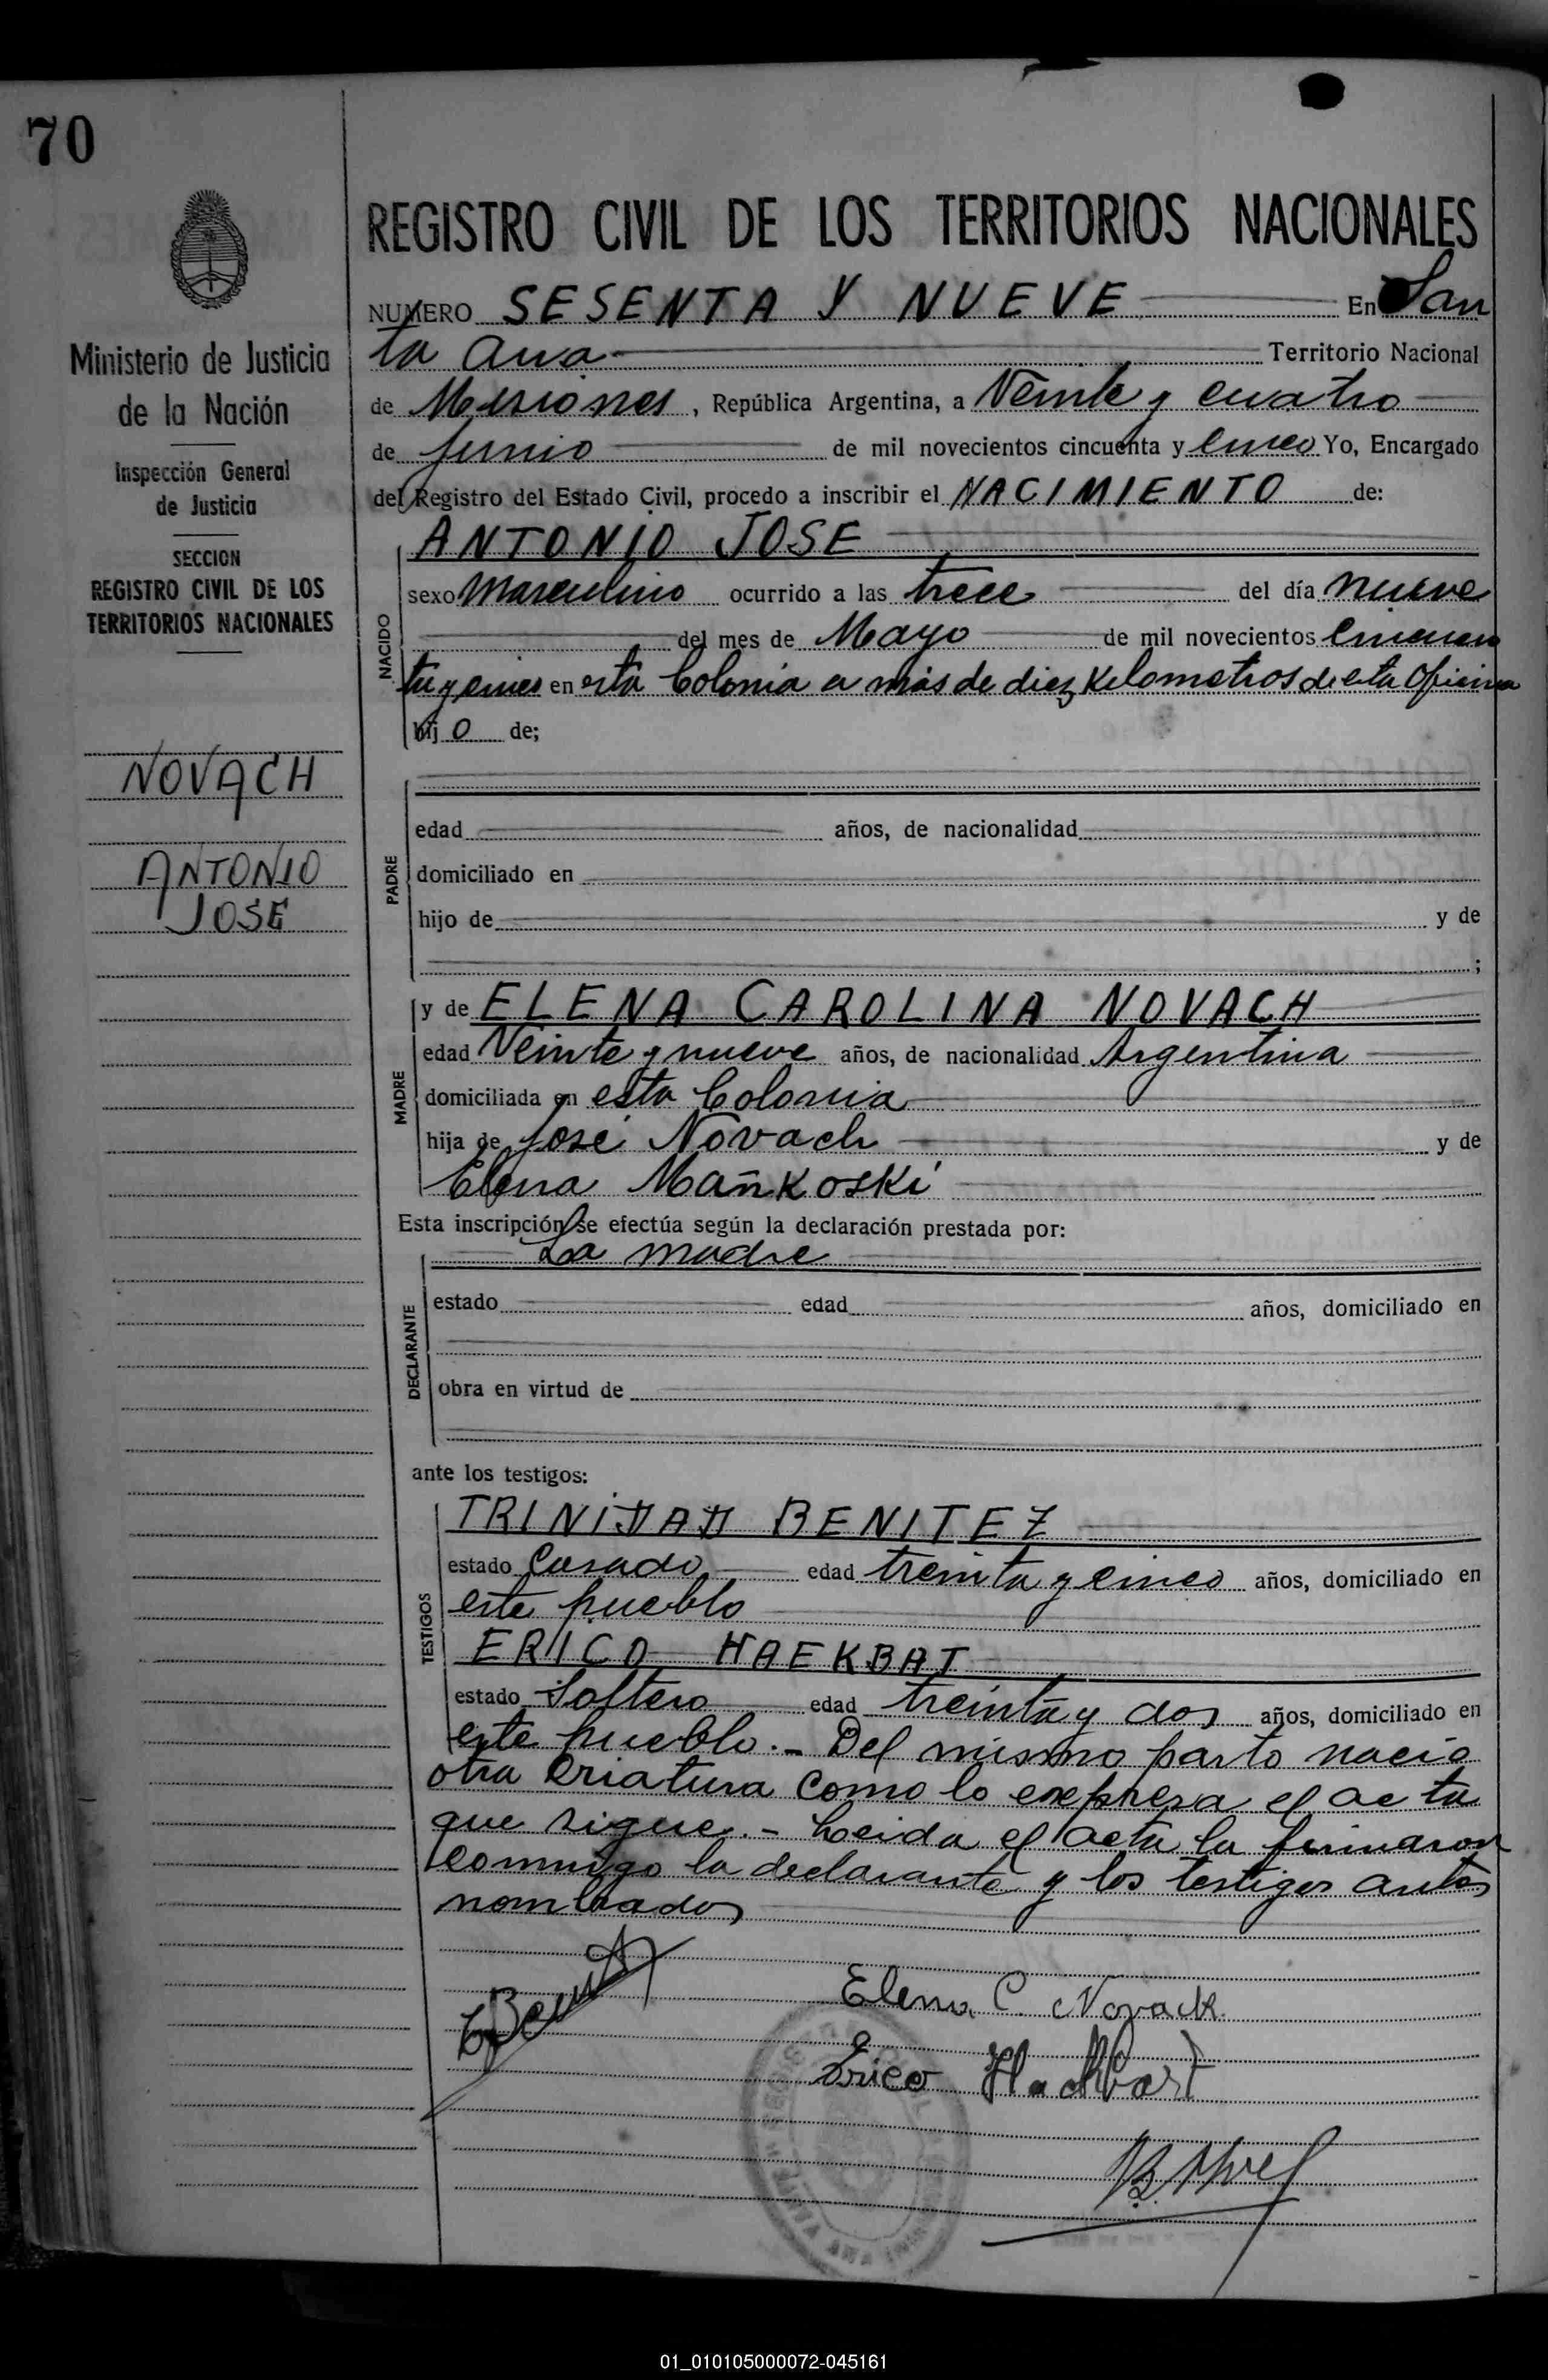 70
Ministerio de Justicia
de la Nación
Inspección General
de Justicia
SECCION
REGISTRO CIVIL DE LOS
TERRITORIOS NACIONALES
NOVACH
ANTONIO
JOSE
REGISTRO CIVIL DE LOS TERRITORIOS NACIONALES
NUMERO SESENTA Y NUEVE En San
ta Ana Territorio Nacional
de Misiones, República Argentina, a Veinte y cuatro
de junio de mil novecientos cincuenta y cinco Yo, Encargado
del Registro del Estado Civil, procedo a inscribir el NACIMIENTO de:
NACIDO
ANTONIO JOSE
sexo Masculino ocurrido a las trece del día nueve
del mes de Mayo de mil novecientos cincuen
ta y cinco en esta Colonia a más de diez kilometros de esta Oficina
hij o de;
PADRE
edad años, de nacionalidad
domiciliado en
hijo de y de
;
MADRE
y de ELENA CAROLINA NOVACH
edad Veinte y nueve años, de nacionalidad Argentina
domiciliada en esta Colonia
hija de José Novach y de
Elena Mañkoski
Esta inscripción se efectúa según la declaración prestada por:
DECLARANTE
La madre
estado edad años, domiciliado en
obra en virtud de
ante los testigos:
TESTIGOS
TRINIDAD BENITEZ
estado Casado edad treinta y cinco años, domiciliado en
este pueblo
ERICO HAEKBAT
estado Soltero edad treinta y dos años, domiciliado en
este pueblo.- Del mismo parto nacio
otra criatura como lo expresa el acta
que sigue.- Leida el acta la firmaron
conmigo la declarante y los testigos antes
nombrados
Elena C. Novack
Erico Hachbart
01_010105000072-045161